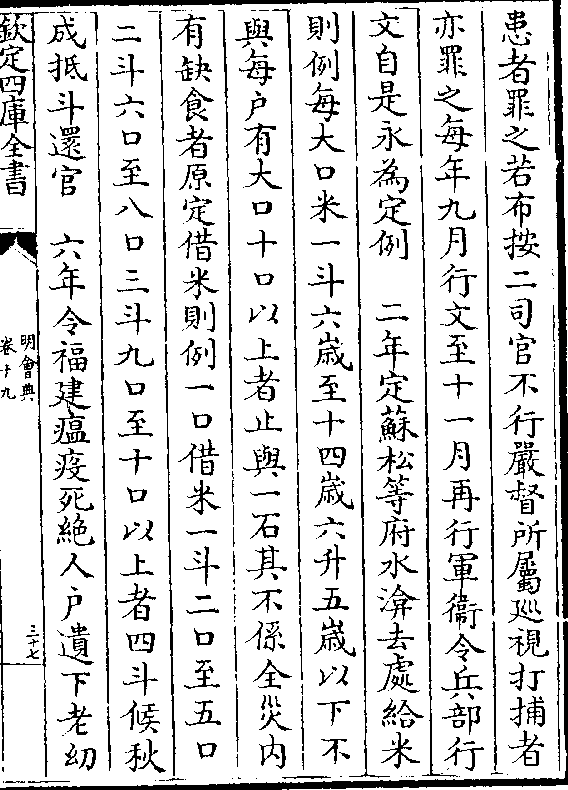 患者罪之若布按二司官不行嚴督所屬廵視打捕者
亦罪之每年九月行文至十一月再行軍衞令兵部行
文自是永為定例　二年定蘇松等府水渰去處給米
則例每大口米一斗六嵗至十四嵗六升五嵗以下不
與每户有大口十口以上者止與一石其不係全災内
有缺食者原定借米則例一口借米一斗二口至五口
二斗六口至八口三斗九口至十口以上者四斗候秋
成抵斗還官　六年令福建瘟疫死絶人户遺下老幼
欽定四庫全書
明會典
卷十九
三十七